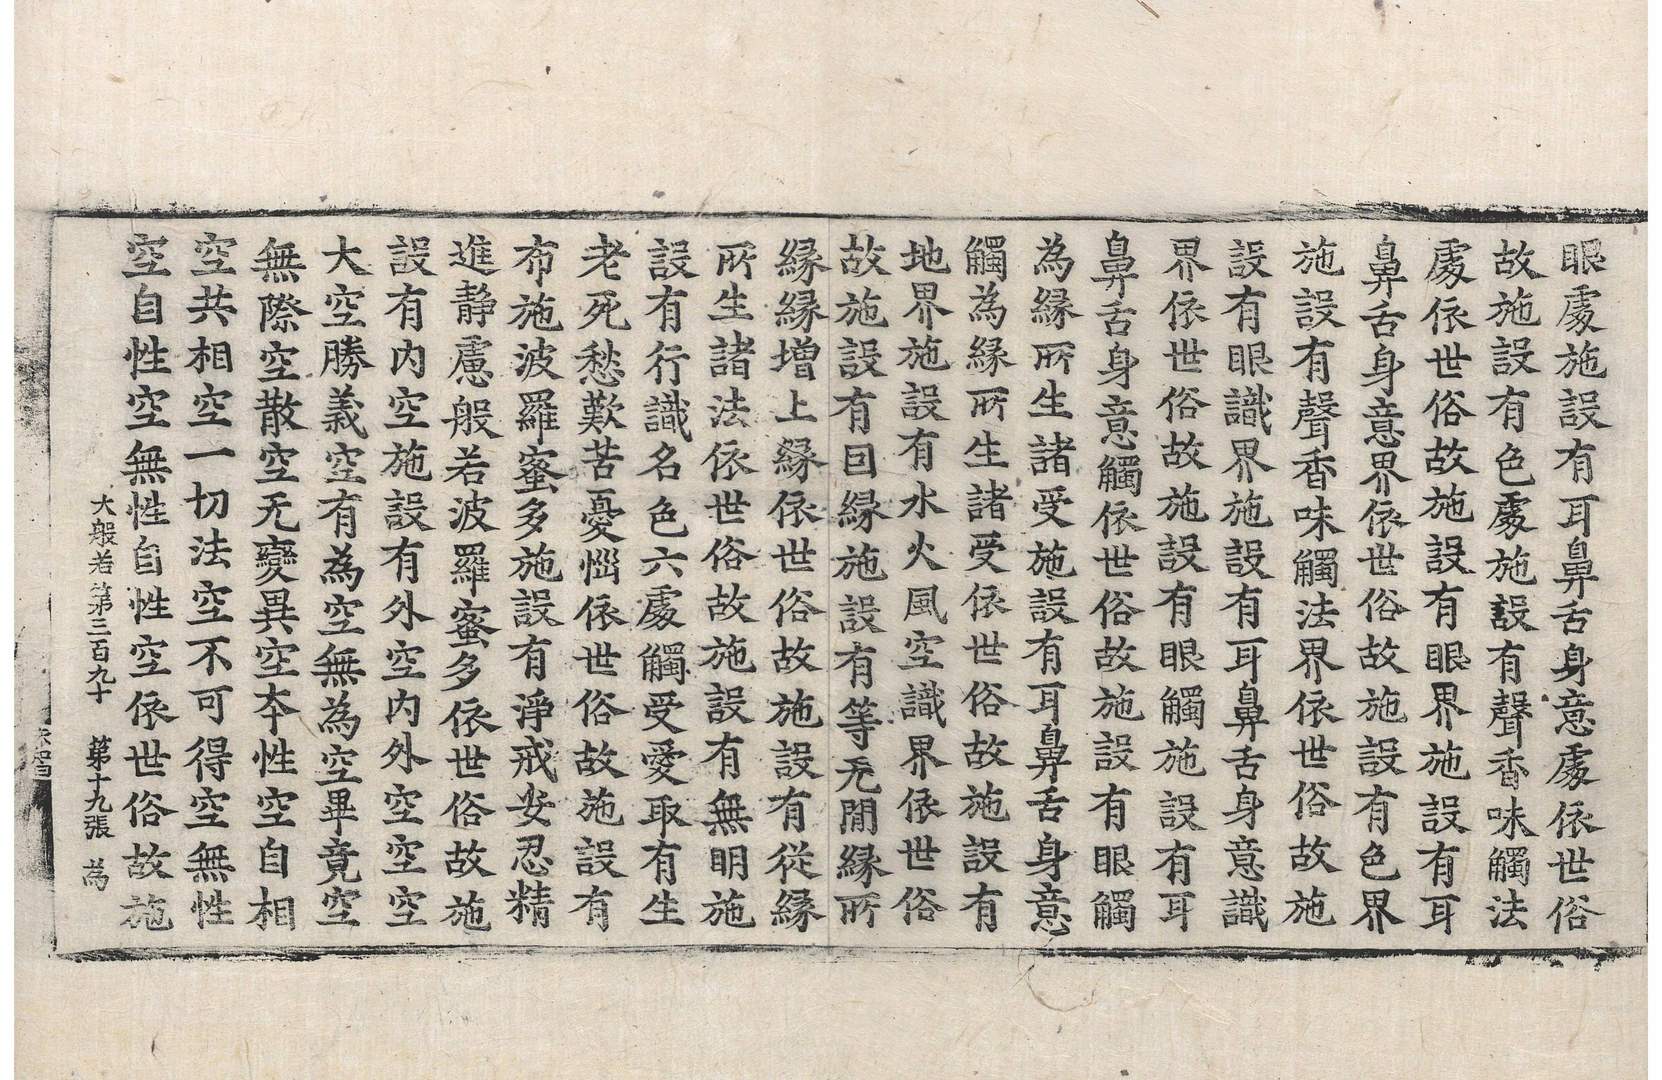 眼處施設有耳鼻舌身意處依世俗
故施設有色處施設有聲香味觸法
處依世俗故施設有眼界施設有耳
鼻舌身意界依世俗故施設有色界
施設有聲香味觸法界依世俗故施
設有眼識界施設有耳鼻舌身意識
界依世俗故施設有眼觸施設有耳
鼻舌身意觸依世俗故施設有眼觸
為緣所生諸受施設有耳鼻舌身意
觸為緣所生諸受依世俗故施設有
地界施設有水火風空識界依世俗
故施設有因緣施設有等无閒緣所
緣緣增上緣依世俗故施設有從緣
所生諸法依世俗故施設有無明施
設有行識名色六處觸受愛取有生
老死愁歎苦憂惱依世俗故施設有
布施波羅蜜多施設有淨戒安忍精
進靜慮般若波羅蜜多依世俗故施
設有內空施設有外空內外空空空
大空勝義空有為空無為空畢竟空
無際空散空无變異空本性空自相
空共相空一切法空不可得空無性
空自性空無性自性空依世俗故施
大般若第三百九十 第十九張 為